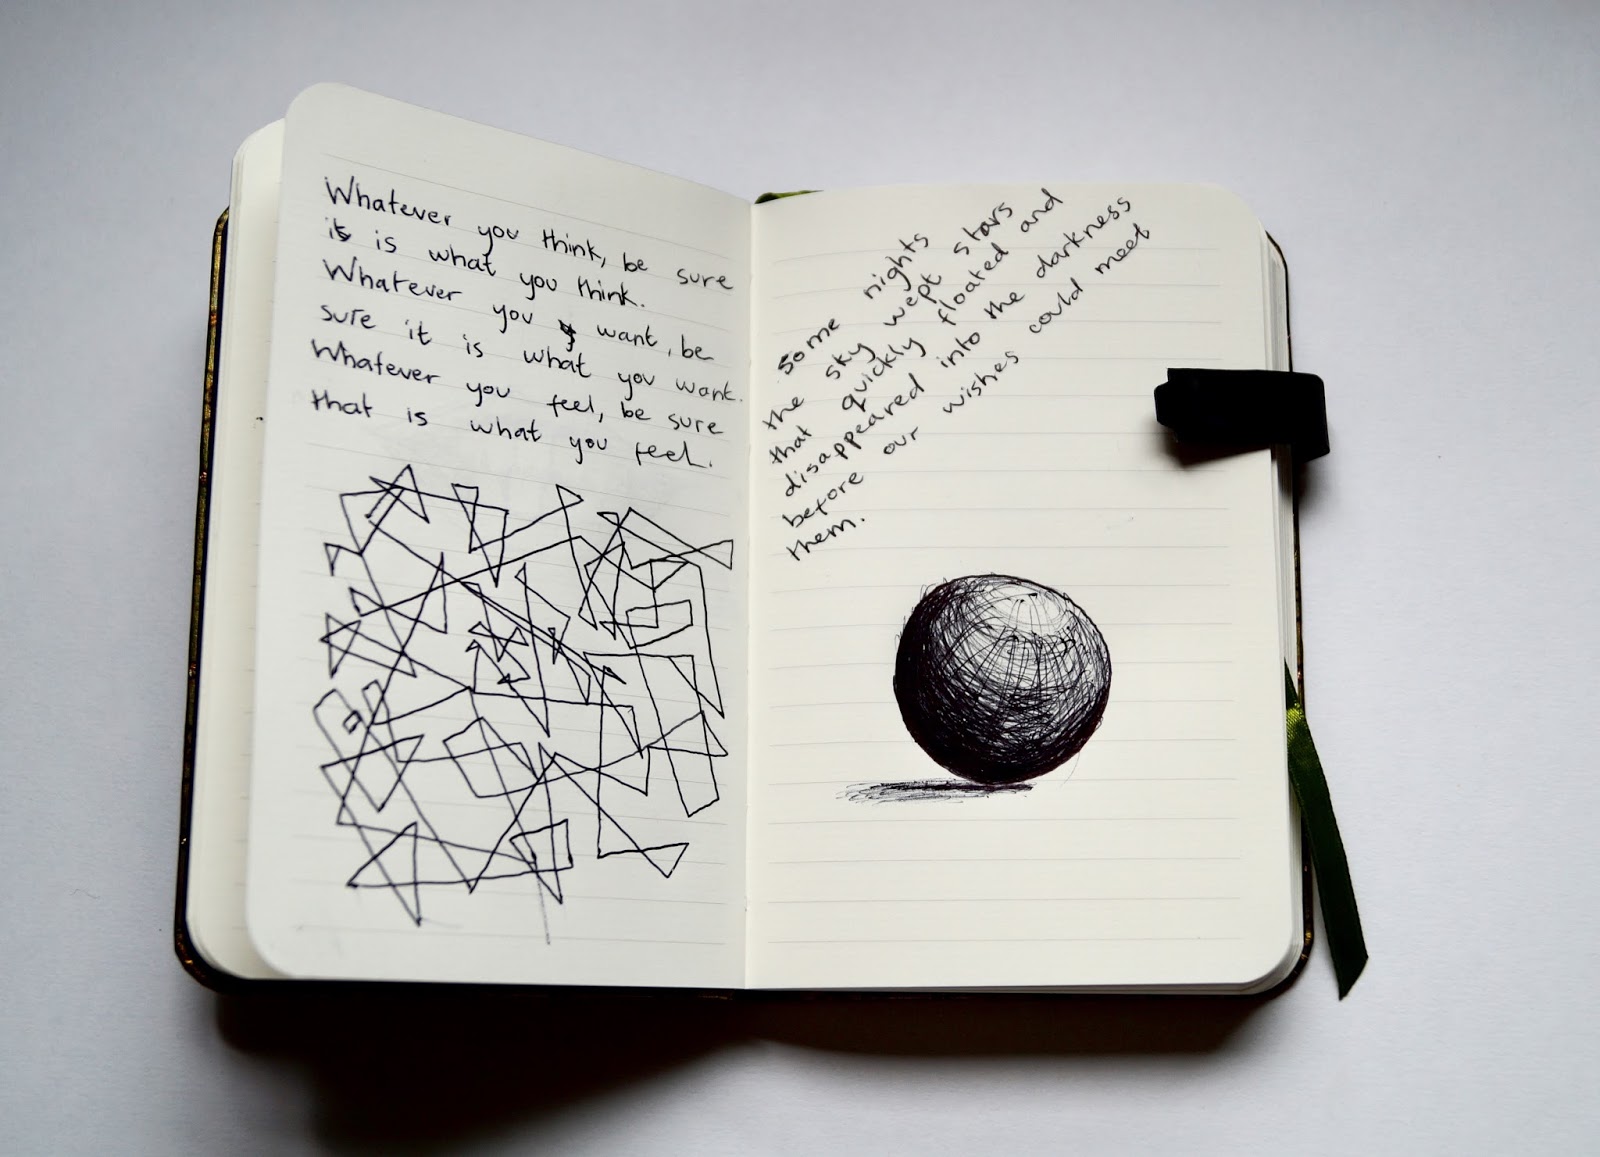 Whatever you think, be sure
it is what you think.
Whatever you want, be
sure it is what you want.
Whatever you feel, be sure
that is what you feel.
Some nights
the sky wept stars
that quickly floated and
disappeared into the darkness
before our wishes could meet
them.